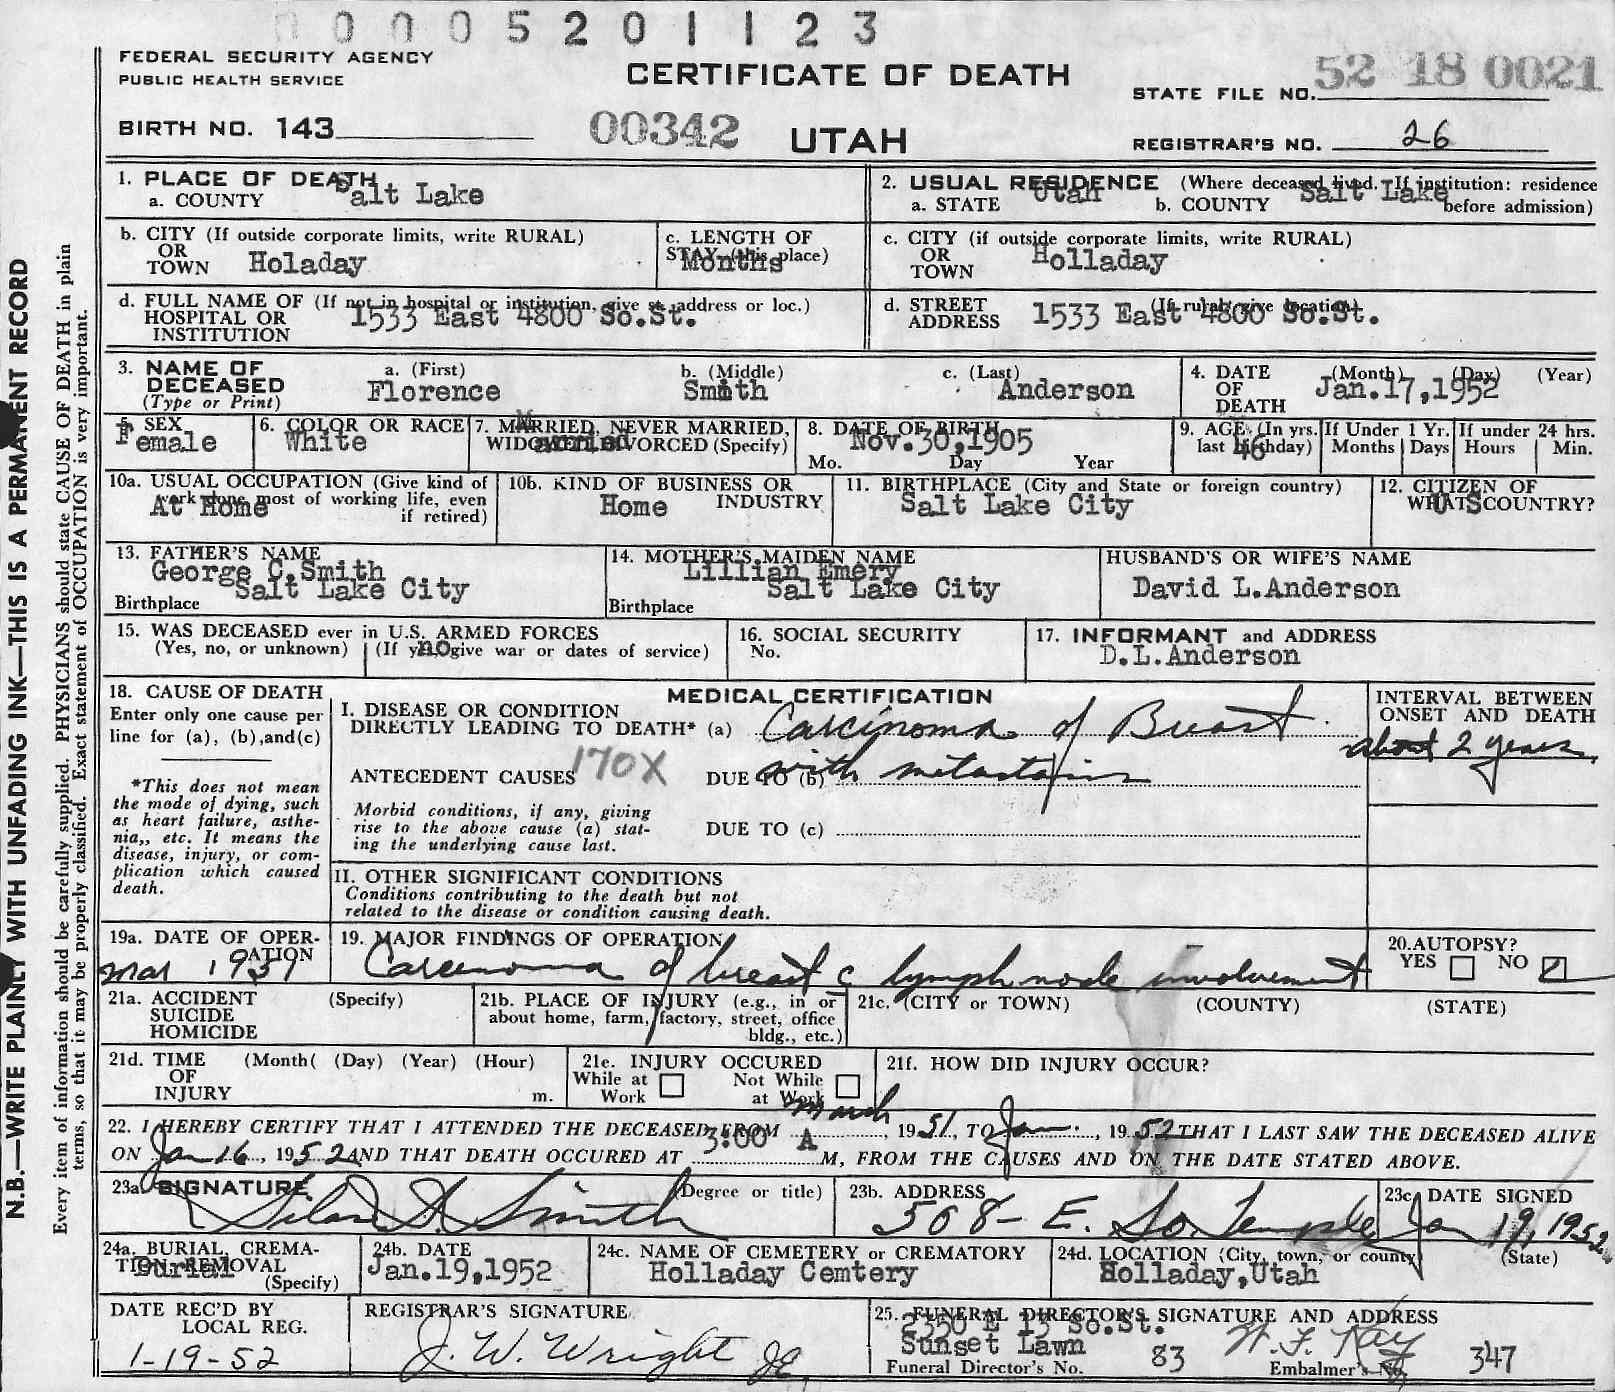 0005201123
FEDERAL SECURITY AGENCY
PUBLIC HEALTH SERVICE
CERTIFICATE OF DEATH
STATE FILE NO. 52 18 0021
BIRTH NO. 143
00342 UTAH
REGISTRAR'S NO. 26
1. PLACE OF DEATH
a. COUNTY Salt Lake
2. USUAL RESIDENCE (Where deceased lived. If institution: residence before admission)
a. STATE Utah b. COUNTY Salt Lake
b. CITY (If outside corporate limits, write RURAL)
OR
TOWN Holaday
c. LENGTH OF
STAY (this place)
Months
c. CITY (if outside corporate limits, write RURAL)
OR
TOWN Holladay
d. FULL NAME OF (If not in hospital or institution, give st. address or loc.)
HOSPITAL OR
INSTITUTION 1533 East 4800 So.St.
d. STREET (If rural, give location)
ADDRESS 1533 East 4800 So.St.
3. NAME OF
DECEASED
(Type or Print)
a. (First) Florence
b. (Middle) Smith
c. (Last) Anderson
4. DATE
OF
DEATH
(Month) (Day) (Year)
Jan.17,1952
5. SEX
Female
6. COLOR OR RACE
White
7. MARRIED, NEVER MARRIED,
WIDOWED, DIVORCED (Specify)
Married
8. DATE OF BIRTH
Nov.30,1905
Mo. Day Year
9. AGE (In yrs.
last birthday)
46
If Under 1 Yr.
Months Days
If under 24 hrs.
Hours Min.
10a. USUAL OCCUPATION (Give kind of
work done most of working life, even
if retired)
At Home
10b. KIND OF BUSINESS OR
INDUSTRY
Home
11. BIRTHPLACE (City and State or foreign country)
Salt Lake City
12. CITIZEN OF
WHAT COUNTRY?
U S
13. FATHER'S NAME
George C.Smith
Birthplace Salt Lake City
14. MOTHER'S MAIDEN NAME
Lillian Emery
Birthplace Salt Lake City
HUSBAND'S OR WIFE'S NAME
David L.Anderson
15. WAS DECEASED ever in U.S. ARMED FORCES
(Yes, no, or unknown) (If yes, give war or dates of service)
no
16. SOCIAL SECURITY
No.
17. INFORMANT and ADDRESS
D.L.Anderson
18. CAUSE OF DEATH
Enter only one cause per
line for (a), (b),and(c)
*This does not mean
the mode of dying, such
as heart failure, asthe-
nia,, etc. It means the
disease, injury, or com-
plication which caused
death.
MEDICAL CERTIFICATION
I. DISEASE OR CONDITION
DIRECTLY LEADING TO DEATH* (a) Carcinoma of Breast
ANTECEDENT CAUSES 170X DUE TO (b) with metastasis
Morbid conditions, if any, giving
rise to the above cause (a) stat-
ing the underlying cause last.
DUE TO (c)
INTERVAL BETWEEN
ONSET AND DEATH
about 2 years
II. OTHER SIGNIFICANT CONDITIONS
Conditions contributing to the death but not
related to the disease or condition causing death.
19a. DATE OF OPER-
ATION
Mar 1951
19. MAJOR FINDINGS OF OPERATION
Carcenoma of breast c lymph node involvement
20.AUTOPSY?
YES NO
21a. ACCIDENT (Specify)
SUICIDE
HOMICIDE
21b. PLACE OF INJURY (e.g., in or
about home, farm, factory, street, office
bldg., etc.)
21c. (CITY or TOWN) (COUNTY) (STATE)
21d. TIME (Month( (Day) (Year) (Hour)
OF
INJURY m.
21e. INJURY OCCURED
While at Work Not While at Work
21f. HOW DID INJURY OCCUR?
22. I HEREBY CERTIFY THAT I ATTENDED THE DECEASED FROM March, 1951, TO Jan., 1952 THAT I LAST SAW THE DECEASED ALIVE
ON Jan 16, 1952 AND THAT DEATH OCCURED AT 3:00 A M, FROM THE CAUSES AND ON THE DATE STATED ABOVE.
23a. SIGNATURE (Degree or title)
Silas S. Smith
23b. ADDRESS
508- E. So. Temple
23c. DATE SIGNED
Jan 19, 1952
24a. BURIAL, CREMA-
TION, REMOVAL
(Specify)
Burial
24b. DATE
Jan.19,1952
24c. NAME OF CEMETERY or CREMATORY
Holladay Cemtery
24d. LOCATION (City, town, or county) (State)
Holladay,Utah
DATE REC'D BY
LOCAL REG.
1-19-52
REGISTRAR'S SIGNATURE
J. W. Wright
25. FUNERAL DIRECTOR'S SIGNATURE AND ADDRESS
2350 E 13 So.St.
Sunset Lawn
W. F. Kay
Funeral Director's No. 83 Embalmer's No. 347
N.B.—WRITE PLAINLY WITH UNFADING INK—THIS IS A PERMANENT RECORD
Every item of information should be carefully supplied. PHYSICIANS should state CAUSE OF DEATH in plain
terms, so that it may be properly classified. Exact statement of OCCUPATION is very important.